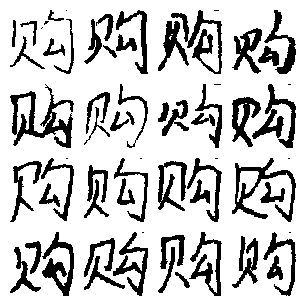 购购购购
购购购购
购购购购
购购购购